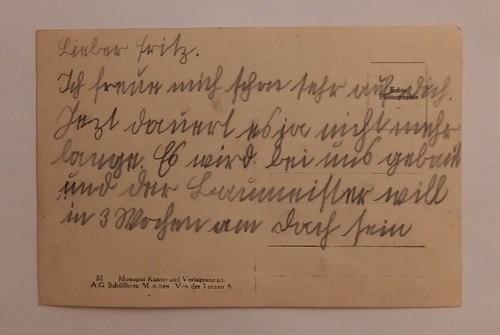 Lieber Fritz.
Ich freue mich schon sehr auf Dich.
Echte Photographie
Jezt dauert es ja nicht mehr
lange. Es wird bei uns gebaut
und der Baumeister will
in 3 Wochen am Dach sein
M Monopol Kunst- und Verlagsanstalt
A.G. Schöllhorn München. Von der Tannstr. 6